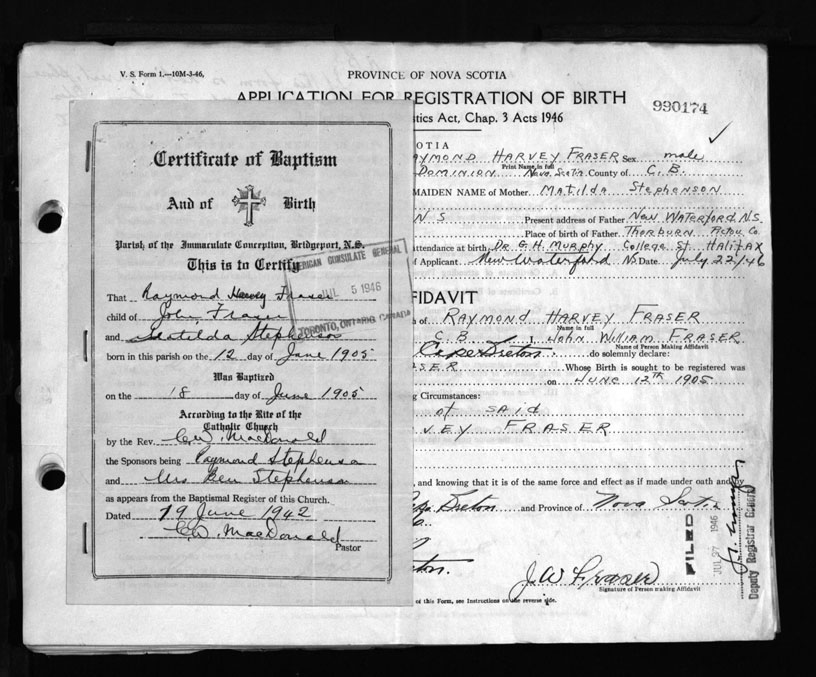 V. S. Form 1.—10M-3-46,
PROVINCE OF NOVA SCOTIA
APPLICATION FOR REGISTRATION OF BIRTH
990174
stics Act, Chap. 3 Acts 1946
Certificate of Baptism
And of Birth
Parish of the Immaculate Conception, Bridgeport, N.S.
This is to Certify
That Raymond Harvey Fraser
child of John Fraser
and Matilda Stephenson
born in this parish on the 12 day of June 1905
Was Baptized
on the 18 day of June 1905
According to the Rite of the
Catholic Church
by the Rev. C.W. MacDonald
the Sponsors being Raymond Stephenson
and Mrs Ben Stephenson
as appears from the Baptismal Register of this Church.
Dated 19 June 1942
C.W. MacDonald
Pastor
ERICAN CONSULATE GENERAL
JUL 5 1946
TORONTO, ONTARIO, CANADA
OTIA
AYMOND HARVEY FRASER Sex male
Print Name in full
DOMINION Nova Scotia County of C.B.
MAIDEN NAME of Mother MATILDA STEPHENSON
N S Present address of Father NEW WATERFORD N.S.
Place of birth of Father THORBURN PICTOU CO.
ttendance at birth DR. G. H. MURPHY COLLEGE ST HALIFAX
f Applicant New Waterford N.S Date July 22/46
FIDAVIT
of RAYMOND HARVEY FRASER
Name in full
C B I, JOHN WILLIAM FRASER
Name of Person Making Affidavit
Cape Breton do solemnly declare:
ASER Whose Birth is sought to be registered was
on JUNE 12TH 1905
ng Circumstances:
of SAID
VEY FRASER
, and knowing that it is of the same force and effect as if made under oath and by
Breton and Province of Nova Scotia
ton.
J.W. Fraser
Signature of Person making Affidavit
of this Form, see Instructions on the reverse side.
FILED
JUL 27 1946
Deputy Registrar General